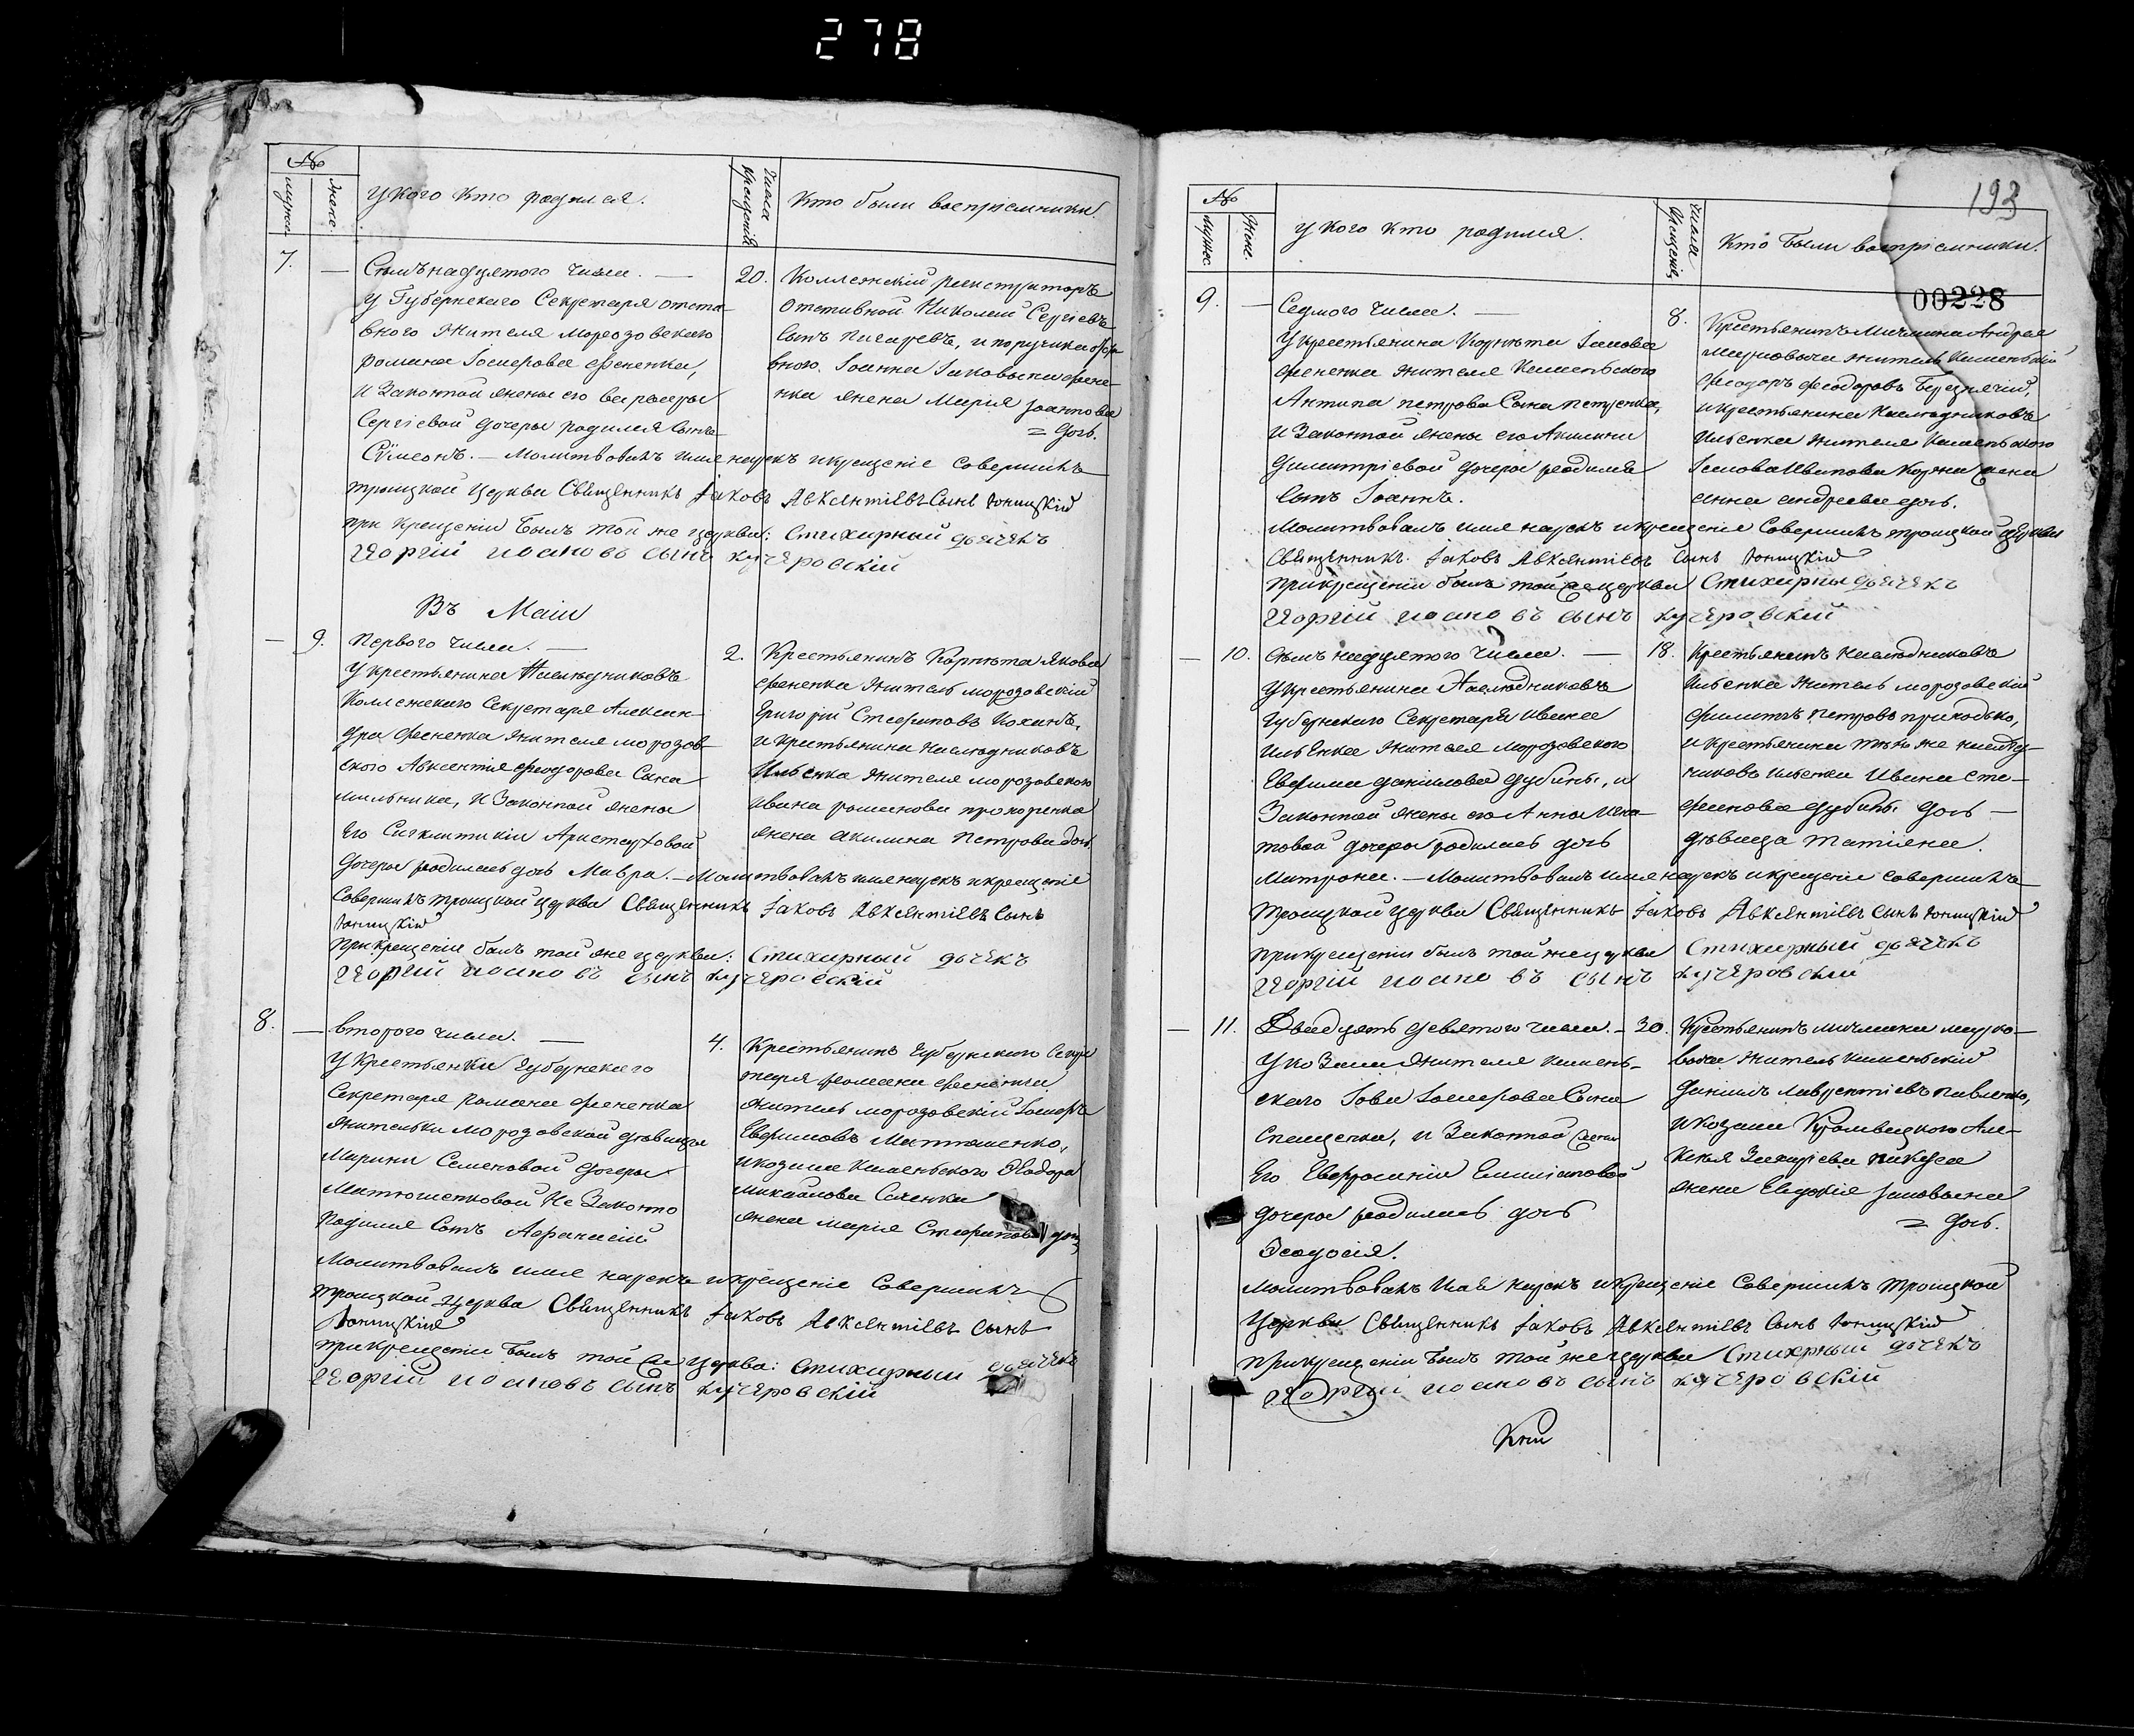 278
№
мужес. женс.
У кого кто родился.
Числа крещенія
Кто были воспріемники.
7. — Семьнадцятого числа. —
У Губернскаго Секретаря отста-
вного жителя морозовского
романа Іосифова фененка,
и Законной жены его варвары
Сергіевой дочеры родился сынъ
Сѵмеонъ. — Молитвовалъ имя нарекъ и крещеніе совершилъ
троицкой церкви Священникъ Іаковъ Авксентіевъ Сынъ
при крещеніи былъ той же церкви: Стихирный дьячекъ
Георгій иоановъ сынъ кучеровскій
20. Коллежскій регистраторъ
отставной Николай Сергіевъ
сынъ Писаревъ, и поручика
Іоанна Іаковыча фене-
нка жена Марія Іоаннова
= дочь.
Въ Маіи
— 9. Первого числа. —
У крестьянина наслѣдниковъ
Коллежского Секретаря Алексан-
дра фененка жителя морозов-
ского Авксентія феодорова Сына
мильника, и Законной жены
Его Сигклитикіи Аристарховой
дочеры родилась дочь Мавра. — Молитвовалъ имя нарекъ и крещеніе
совершилъ троицкой церкви Священникъ Іаковъ Авксентіевъ Сынъ
при крещеніи былъ той же церкви: Стихирный дьячекъ
Георгій иоановъ сынъ кучеровскій
2. Крестьянинъ Корнета Якова
фененка житель морозовскій
Григорій Стефановъ Кохинъ,
и крестьянина наслѣдниковъ
Ильенка жителя морозовского
ивана романова прохоренка
жена акилина Петрова дочь
8. — второго числа. —
У Крестьянки Губернскаго
Секретаря романа фененка
жительки морозовской дѣвицы
Марины Семеновой дочеры
Матюшенковой Не Законно
родился сынъ Афанасій
Молитвовалъ имя нарекъ и крещеніе совершилъ
троицкой церкви Священникъ Іаковъ Авксентіевъ Сынъ
при крещеніи былъ той же церкви: Стихирный дьячекъ
Георгій иоановъ сынъ кучеровскій
4. Крестьянинъ Губернского Секре
таря романа фененка
житель морозовскій Іосифъ
Евфимовъ Матюшенко,
и козака Каменьского Ѳеодора
михайлова
жена марія Стефанова дочь
193
00228
№
мужес. Женс.
У кого кто родился.
Числа Крещенія
Кто были воспріемники.
9. — Седмого числа. —
У крестьянина Корнета Іакова
фененка жителя Каменьского
Антипа петрова Сына петренка,
и Законной жены его Акилины
Димитріевой дочеры родился
сынъ Іоаннъ.
Молитвовалъ имя нарекъ и крещеніе Совершилъ троицкой церкви
Священникъ Іаковъ Авксентіевъ Сынъ
при крещеніи былъ той же церкви Стихирный дьячекъ
Георгій иоановъ сынъ кучеровскій
8. Крестьянинъ Мичмана Андрея
марковыча житель Каменьскій
феодоръ феодоровъ
и крестьянина наслѣдниковъ
Ильенка жителя Каменьского
Іакова Иванова жена
анна андреева дочь.
— 10. Семьнадцятого числа. —
У крестьянина Наслѣдниковъ
Губернского Секретаря ивана
Ильенка жителя морозовского
Евфима даніилова дубины, и
Законной жены его Анны Игна-
товой дочеры родилась дочь
Матрона. — Молитвовалъ имя нарекъ и крещеніе совершилъ
троицкой церкви Священникъ Іаковъ Авксентіевъ Сынъ
при крещеніи былъ той же церкви Стихирный дьячекъ
Георгій иоановъ сынъ кучеровскій
18. Крестьянинъ Наслѣдниковъ
Ильенка житель морозовскій
филипъ Петровъ приходько,
и крестьянина тѣхъ же наслѣд-
никовъ ильенка Ивана сте-
фанова дубины дочь —
дѣвица татіана.
— 11. Двадцять девятого числа. —
У козака жителя камень-
ского Іова Іосифова Сына
Спащенка, и Законной жены
Его Евфросиніи Емиліановой
дочеры родилась дочь
Ѳеодосія.
Молитвовалъ имя нарекъ и крещеніе Совершилъ троицкой
Церкви Священникъ Іаковъ Авксентіевъ Сынъ
при крещеніи былъ той же церкви Стихирный дьячекъ
Георгій иоановъ сынъ кучеровскій
30. Крестьянинъ мичмана марко-
выча житель каменьскій
даніилъ лаврентіевъ павленко,
и козака Але-
ксѣя Захаріева
жена Евдокія Іаковлева
= дочь.